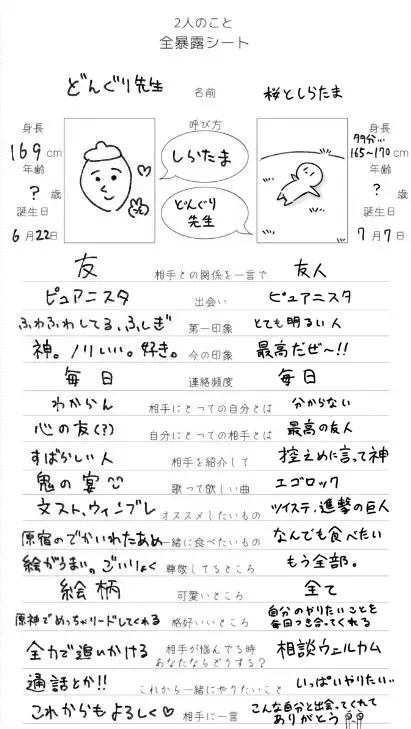 2人のこと
全暴露シート
どんぐり先生 名前 桜としらたま
身長 呼び方 身長
169cm しらたま 多分… 165〜170cm
年齢 年齢
?歳 どんぐり先生 ?歳
誕生日 誕生日
6月22日 7月7日
友 相手との関係を一言で 友人
ピュアニスタ 出会い ピュアニスタ
ふわふわしてる、ふしぎ 第一印象 とても明るい人
神。ノリいい。好き。 今の印象 最高だぜ〜!!
毎日 連絡頻度 毎日
わからん 相手にとっての自分とは 分からない
心の友(?) 自分にとっての相手とは 最高の友人
すばらしい人 相手を紹介して 控えめに言って神
鬼の宴 歌って欲しい曲 エゴロック
文スト、ウィンブレ オススメしたいもの ツイステ、進撃の巨人
原宿のでかいわたあめ 一緒に食べたいもの なんでも食べたい
絵がうまい。ごいりょく 尊敬してるところ もう全部。
絵柄 可愛いところ 全て
原神でめっちゃリードしてくれる 格好いいところ 自分のやりたいことを毎回つき合ってくれる
全力で追いかける 相手が悩んでる時あなたならどうする? 相談ウェルカム
通話とか!! これから一緒にやりたいこと いっぱいやりたい…
これからもよろしく♡ 相手に一言 こんな自分と出会ってくれてありがとう